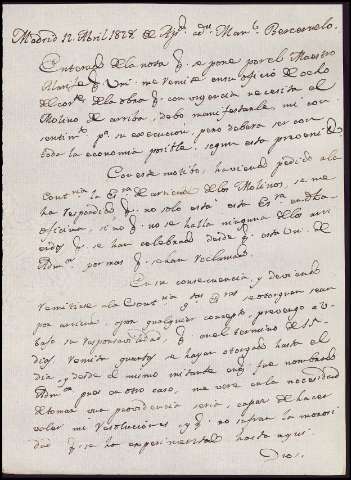 Madrid 12 Abril 1828 de Agn. a dn. Manl. Berceruelo.
Enterado de la nota q. se pone por el Maestro
q. Vm. me remite en su oficio de ocho
del corte. de la obra q. con urgencia necesita el
Molino de arriba, debo manifestarle, mi con-
sentimto. pa. su egecucion, pero debera ser con
toda la economia posible, segun esta prevenido.
Con este motibo, haviendo pedido a la
Contria. la Esra. de arriendo de los Molinos, se me
ha respondido q. no solo esta esta Esra. en dha.
oficina, si no q. no se halla ninguna de los arri
endos q. se han celebrado desde q. esta Vm. de
Admor. por mas q. se han reclamado.
En su consecuencia, y deviendo
remitirse a la Contria. las q. se otorguen sean
por arriendo, o por qualquier concepto, prevengo a V.
bajo su responsabilidad, q. en el termino de 15
dias, remita quantas se hayan otorgado hasta el
dia, y desde el mismo instante en q. fue nombrado
Admor. pues en otro caso, me vere en la necesidad
de tomar una providencia seria, capaz de hacer
valer mis resoluciones, y q. no sufran la morosi
dad q. se ha experimentado hasta aqui.
Dios.